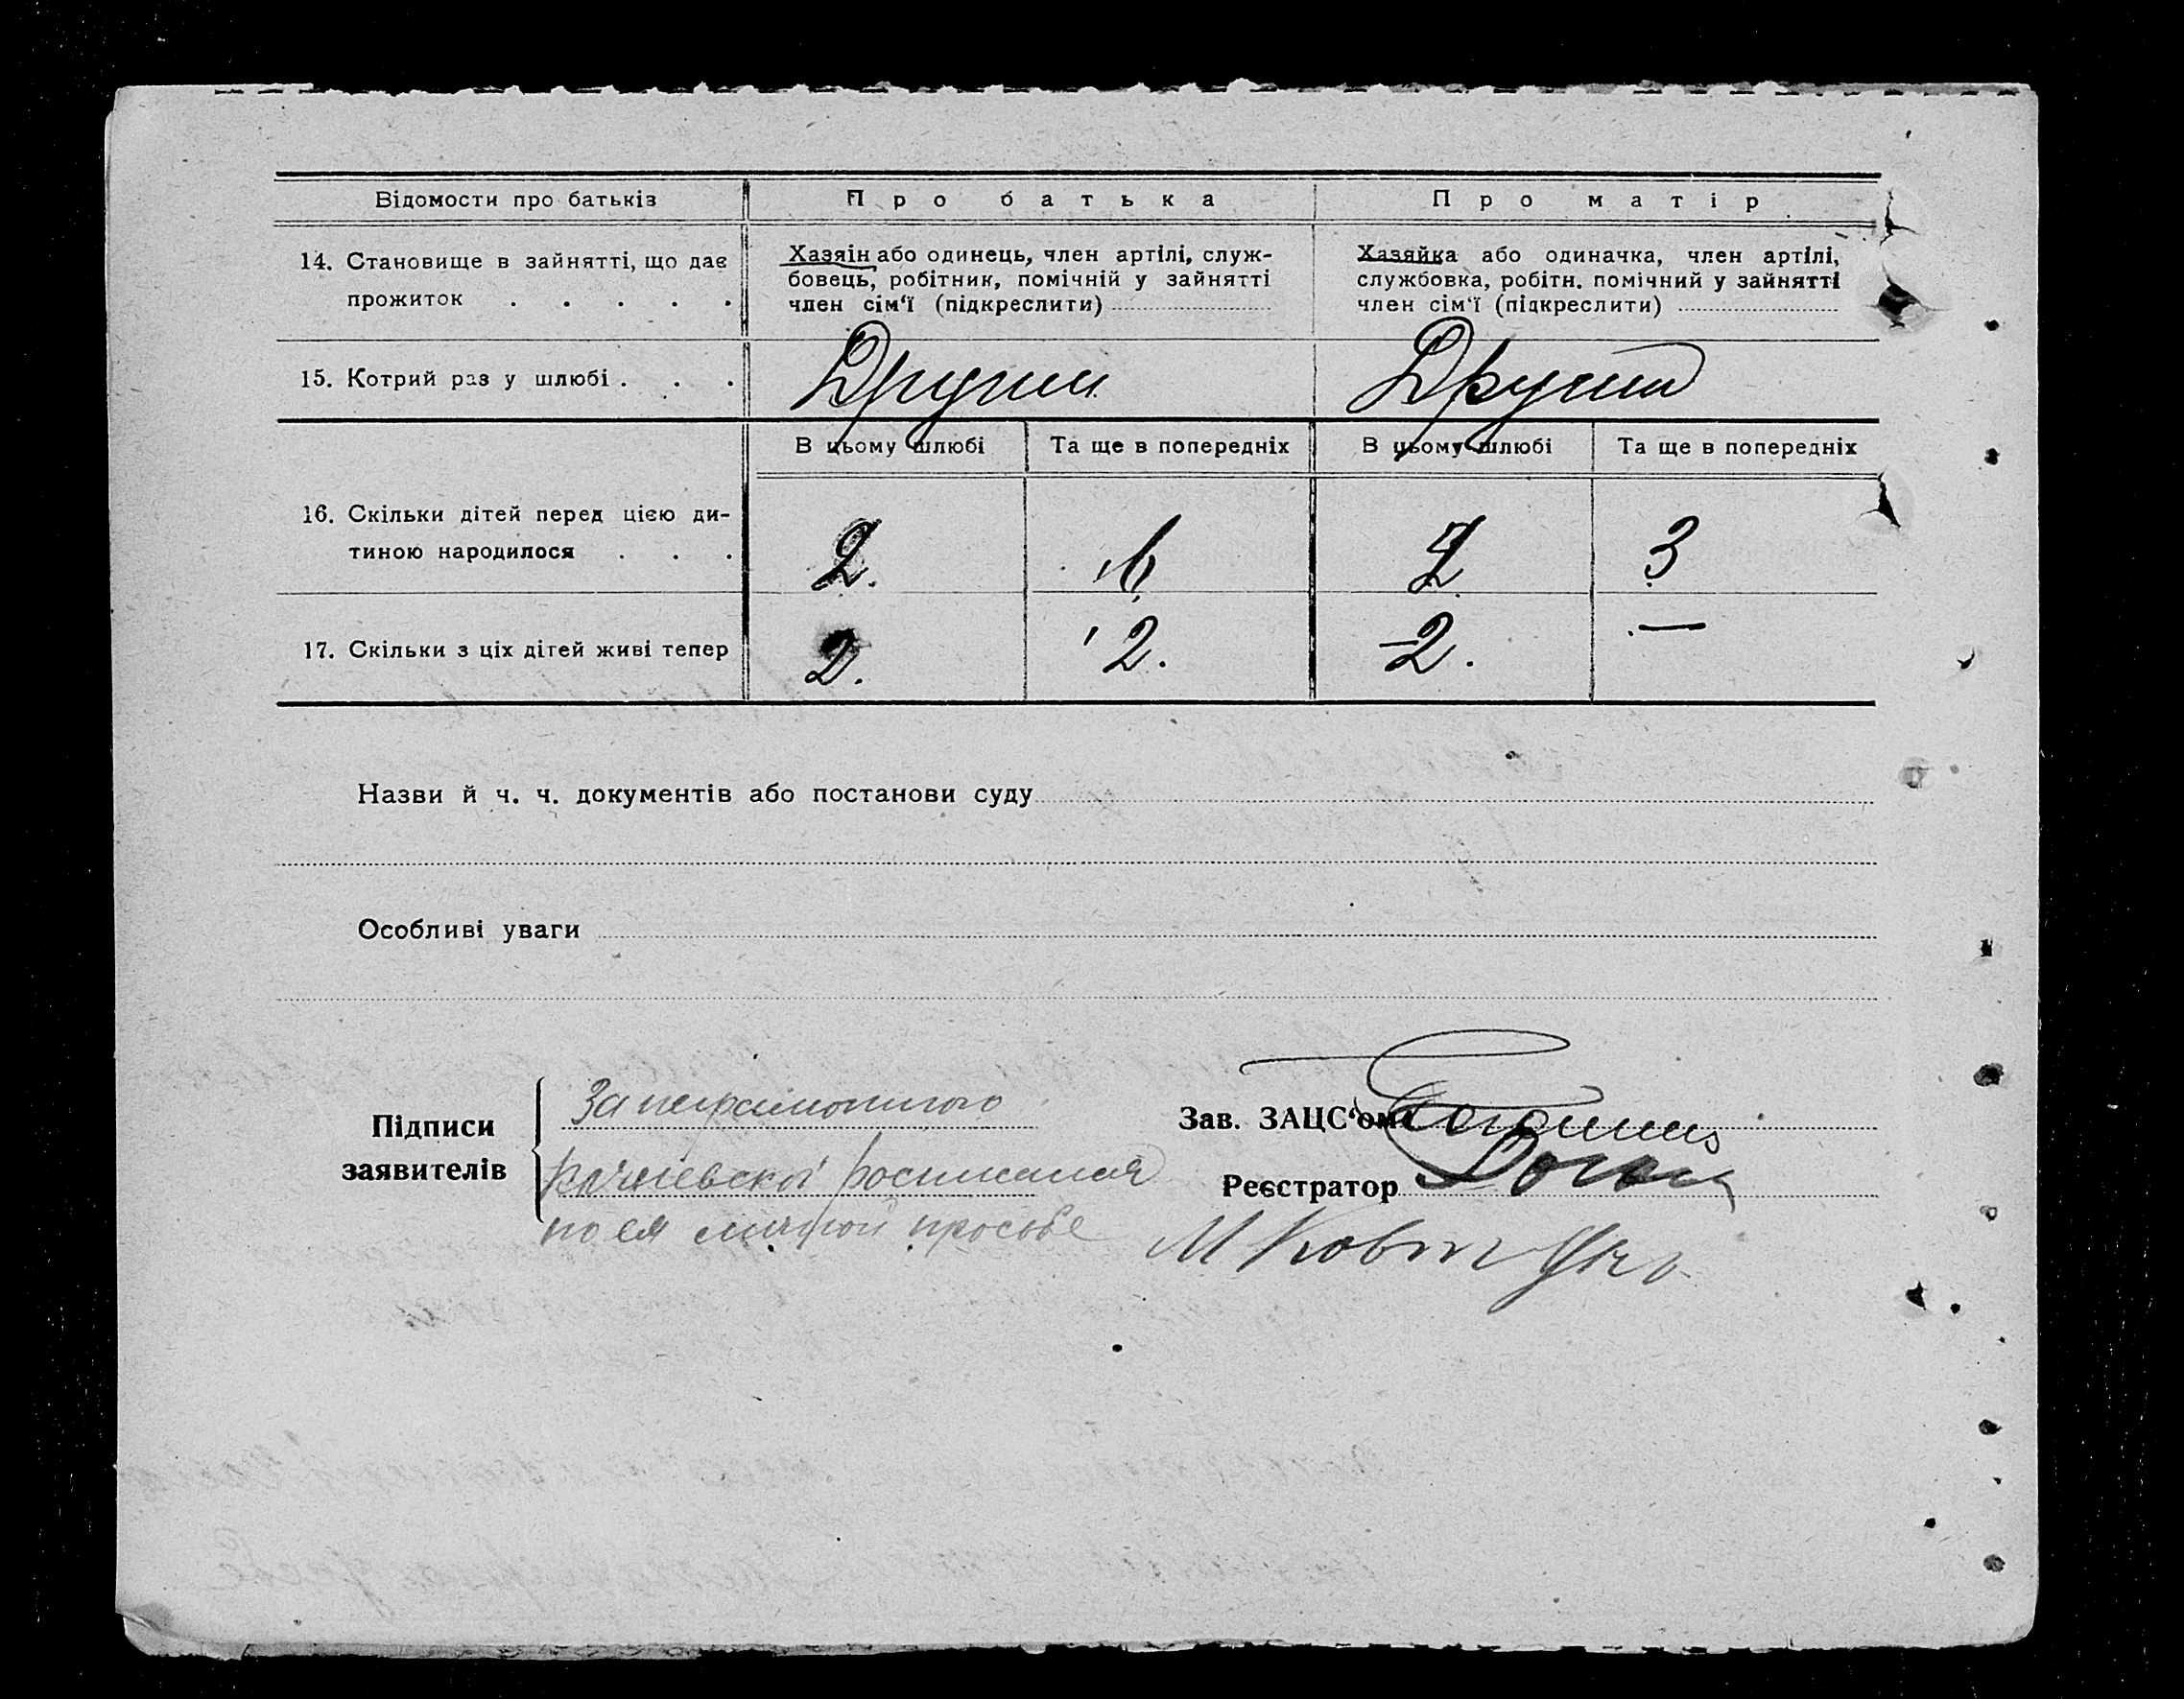 Відомости про батьків
Про батька
Про матір
14. Становище в зайнятті, що дає
прожиток . . . . .
Хазяїн або одинець, член артілі, служ-
бовець, робітник, помічній у зайнятті
член сім‘ї (підкреслити)
Хазяйка або одиначка, член артілі,
службовка, робітн. помічний у зайнятті
член сім‘ї (підкреслити)
15. Котрий раз у шлюбі . . .
Другий
Другий
В цьому шлюбі
Та ще в попередніх
В цьому шлюбі
Та ще в попередніх
16. Скільки дітей перед цією ди-
тиною народилося . . .
2.
2
3
17. Скільки з ціх дітей живі тепер
2.
2.
2.
—
Назви й ч. ч. документів або постанови суду
Особливі уваги
Підписи
заявителів
За неграмотного
росписался
по ея личной просьбе
Зав. ЗАЦС‘ом
Реєстратор